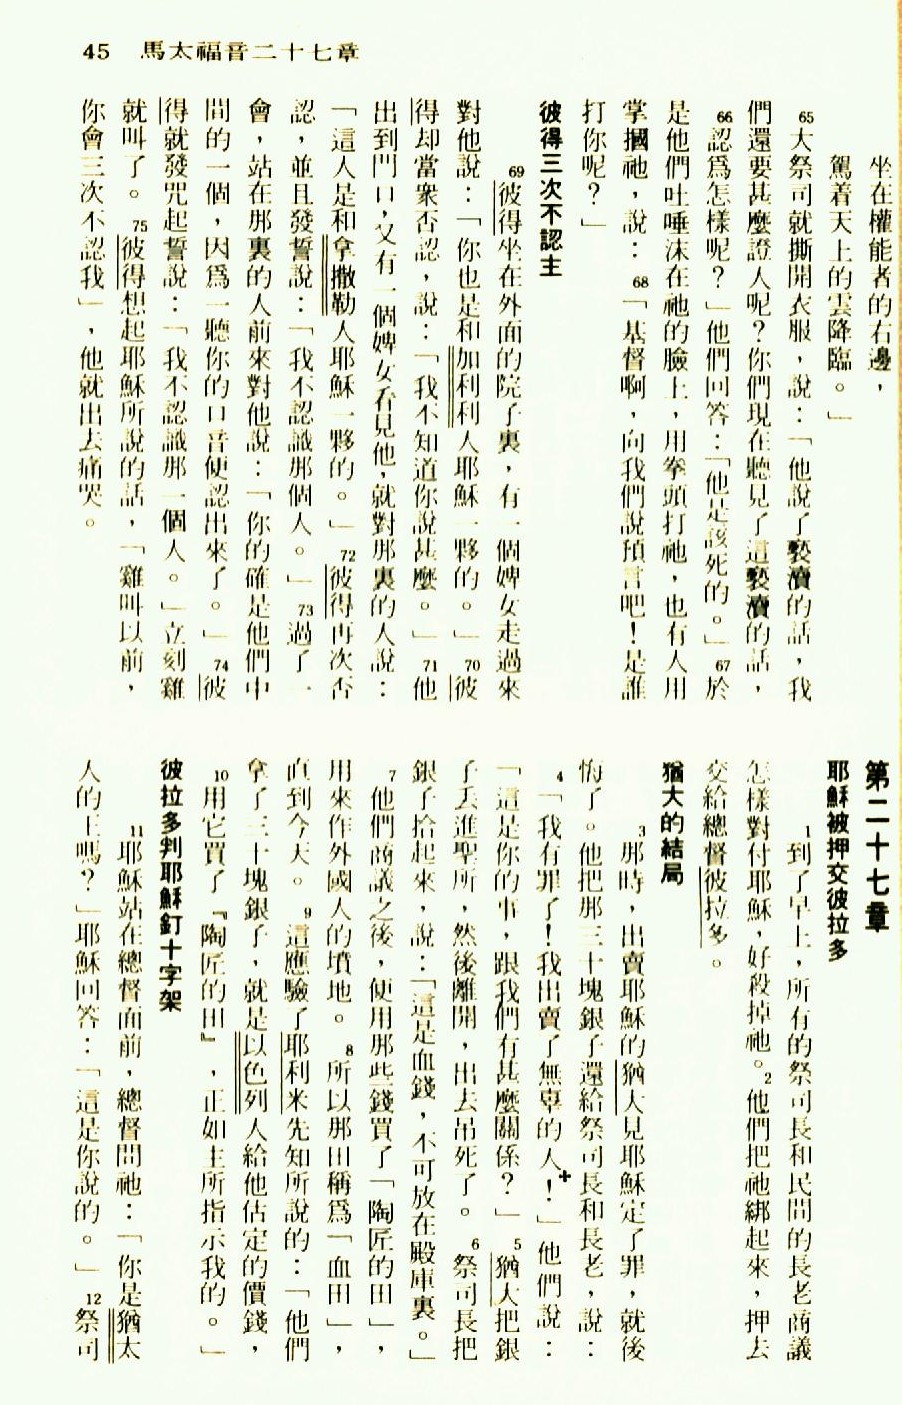 45 馬太福音二十七章
坐在權能者的右邊，
駕着天上的雲降臨。」
65大祭司就撕開衣服，說：「他說了褻瀆的話，我
們還要甚麼證人呢？你們現在聽見了這褻瀆的話，
66認爲怎樣呢？」他們回答：「他是該死的。」67於
是他們吐唾沫在祂的臉上，用拳頭打祂，也有人用
掌摑祂，說：68「基督啊，向我們說預言吧！是誰
打你呢？」
彼得三次不認主
69彼得坐在外面的院子裏，有一個婢女走過來
對他說：「你也是和加利利人耶穌一夥的。」70彼
得却當衆否認，說：「我不知道你說甚麼。」71他
出到門口，又有一個婢女看見他，就對那裏的人說：
「這人是和拿撒勒人耶穌一夥的。」72彼得再次否
認，並且發誓說：「我不認識那個人。」73過了一
會，站在那裏的人前來對他說：「你的確是他們中
間的一個，因爲一聽你的口音便認出來了。」74彼
得就發咒起誓說：「我不認識那一個人。」立刻雞
就叫了。75彼得想起耶穌所說的話，「雞叫以前，
你會三次不認我」，他就出去痛哭。
第二十七章
耶穌被押交彼拉多
1到了早上，所有的祭司長和民間的長老商議
怎樣對付耶穌，好殺掉祂。2他們把祂綁起來，押去
交給總督彼拉多。
猶大的結局
3那時，出賣耶穌的猶大見耶穌定了罪，就後
悔了。他把那三十塊銀子還給祭司長和長老，說：
4「我有罪了！我出賣了無辜的人！」他們說：
「這是你的事，跟我們有甚麼關係？」5猶大把銀
子丢進聖所，然後離開，出去吊死了。6祭司長把
銀子拾起來，說：「這是血錢，不可放在殿庫裏。」
7他們商議之後，便用那些錢買了「陶匠的田」，
用來作外國人的墳地。8所以那田稱爲「血田」，
直到今天。9這應驗了耶利米先知所說的：「他們
拿了三十塊銀子，就是以色列人給他估定的價錢，
10用它買了『陶匠的田』，正如主所指示我的。」
彼拉多判耶穌釘十字架
11耶穌站在總督面前，總督問祂：「你是猶太
人的王嗎？」耶穌回答：「這是你說的。」12祭司